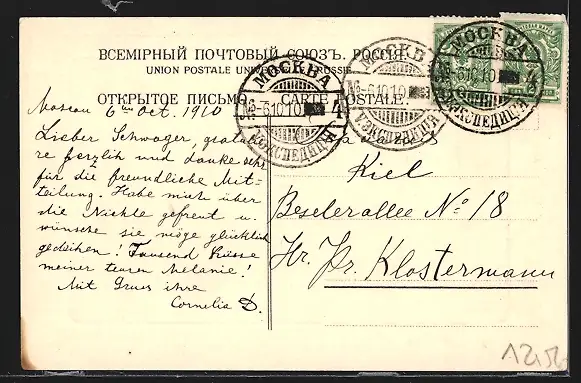 ВСЕМІРНЫЙ ПОЧТОВЫЙ СОЮЗЪ. РОССІЯ.
UNION POSTALE UNIVERSELLE. RUSSIE
ОТКРЫТОЕ ПИСЬМО. CARTE POSTALE.
МОСКВА
-6 10 10
4
ЭКСПЕДИЦІЯ
МОСКВА
-6 10 10
ЭКСПЕДИЦІЯ
МОСКВА
-6 10 10
4
ЭКСПЕДИЦІЯ
Moscou 6ten Oct. 1910
Lieber Schwager, gratu-
re herzlich und danke sehr
für die freundliche Mit-
teilung. Habe mich über
die Nichte gefreut u.
wünsche sie möge glücklich
gedeihen! Tausend Küsse
meiner teuren Melanie!
Mit Gruss ihre
Cornelia D.
Kiel
Beselerallee No 18
Hr. Dr. Klostermann